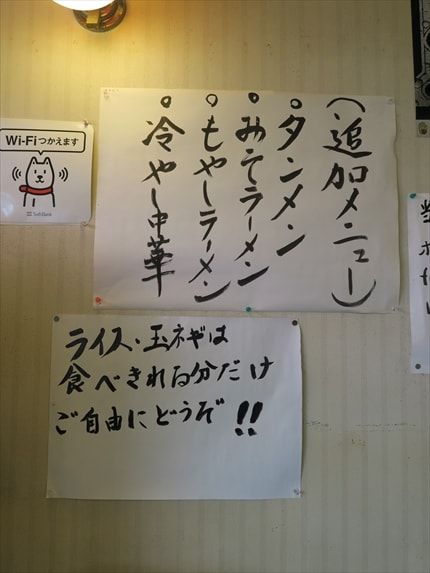 (追加メニュー)
○タンメン
○みそラーメン
○もやしラーメン
○冷やし中華
Wi-Fiつかえます
SoftBank
ライス・玉ネギは
食べきれる分だけ
ご自由にどうぞ!!